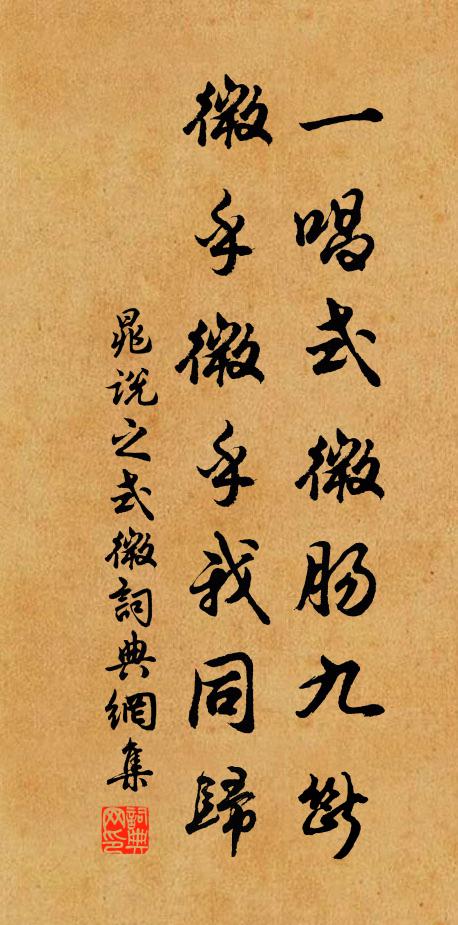 一唱式微肠九断
微乎微乎我同歸
晁說之式微詞典網集
詞典网印